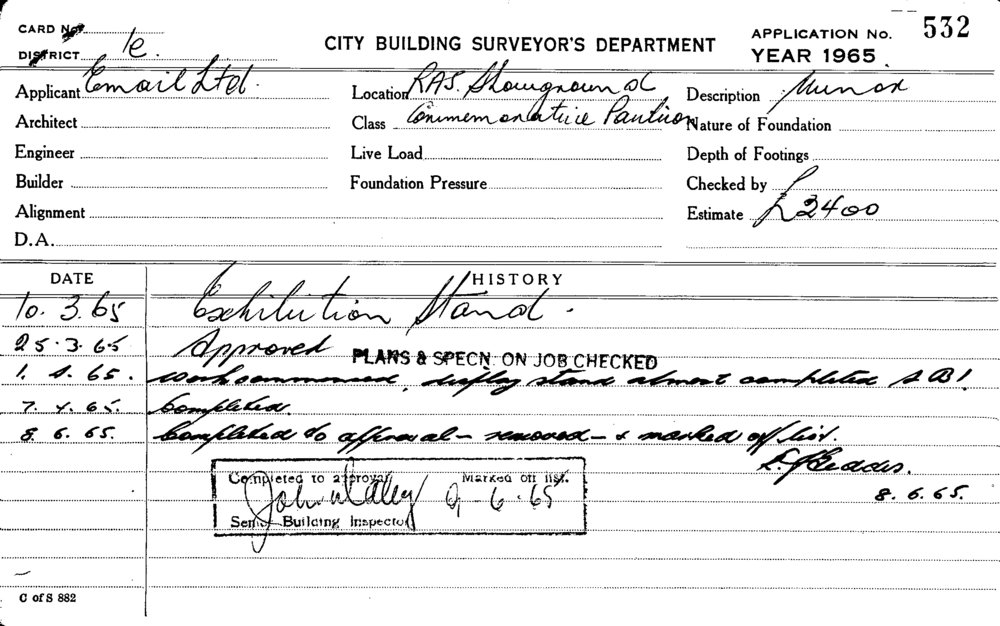 CARD No.
DISTRICT 1e.
CITY BUILDING SURVEYOR'S DEPARTMENT
APPLICATION No. 532
YEAR 1965.
Applicant Email Ltd.
Location RAS. Showground
Description Minor
Architect
Class Commemorative Pavilion
Nature of Foundation
Engineer
Live Load
Depth of Footings
Builder
Foundation Pressure
Checked by
Alignment
Estimate £2400
D.A.
DATE HISTORY
10. 3. 65 Exhibition Stand.
25. 3. 65 Approved PLANS & SPECN. ON JOB CHECKED
1. 4. 65. work commenced, display stand almost completed
7. 4. 65. Completed.
8. 6. 65. Completed to approval - removed - & marked off list.
8. 6. 65.
Completed to approval Marked off list.
9 - 6 - 65
Senior Building Inspector
C of S 882